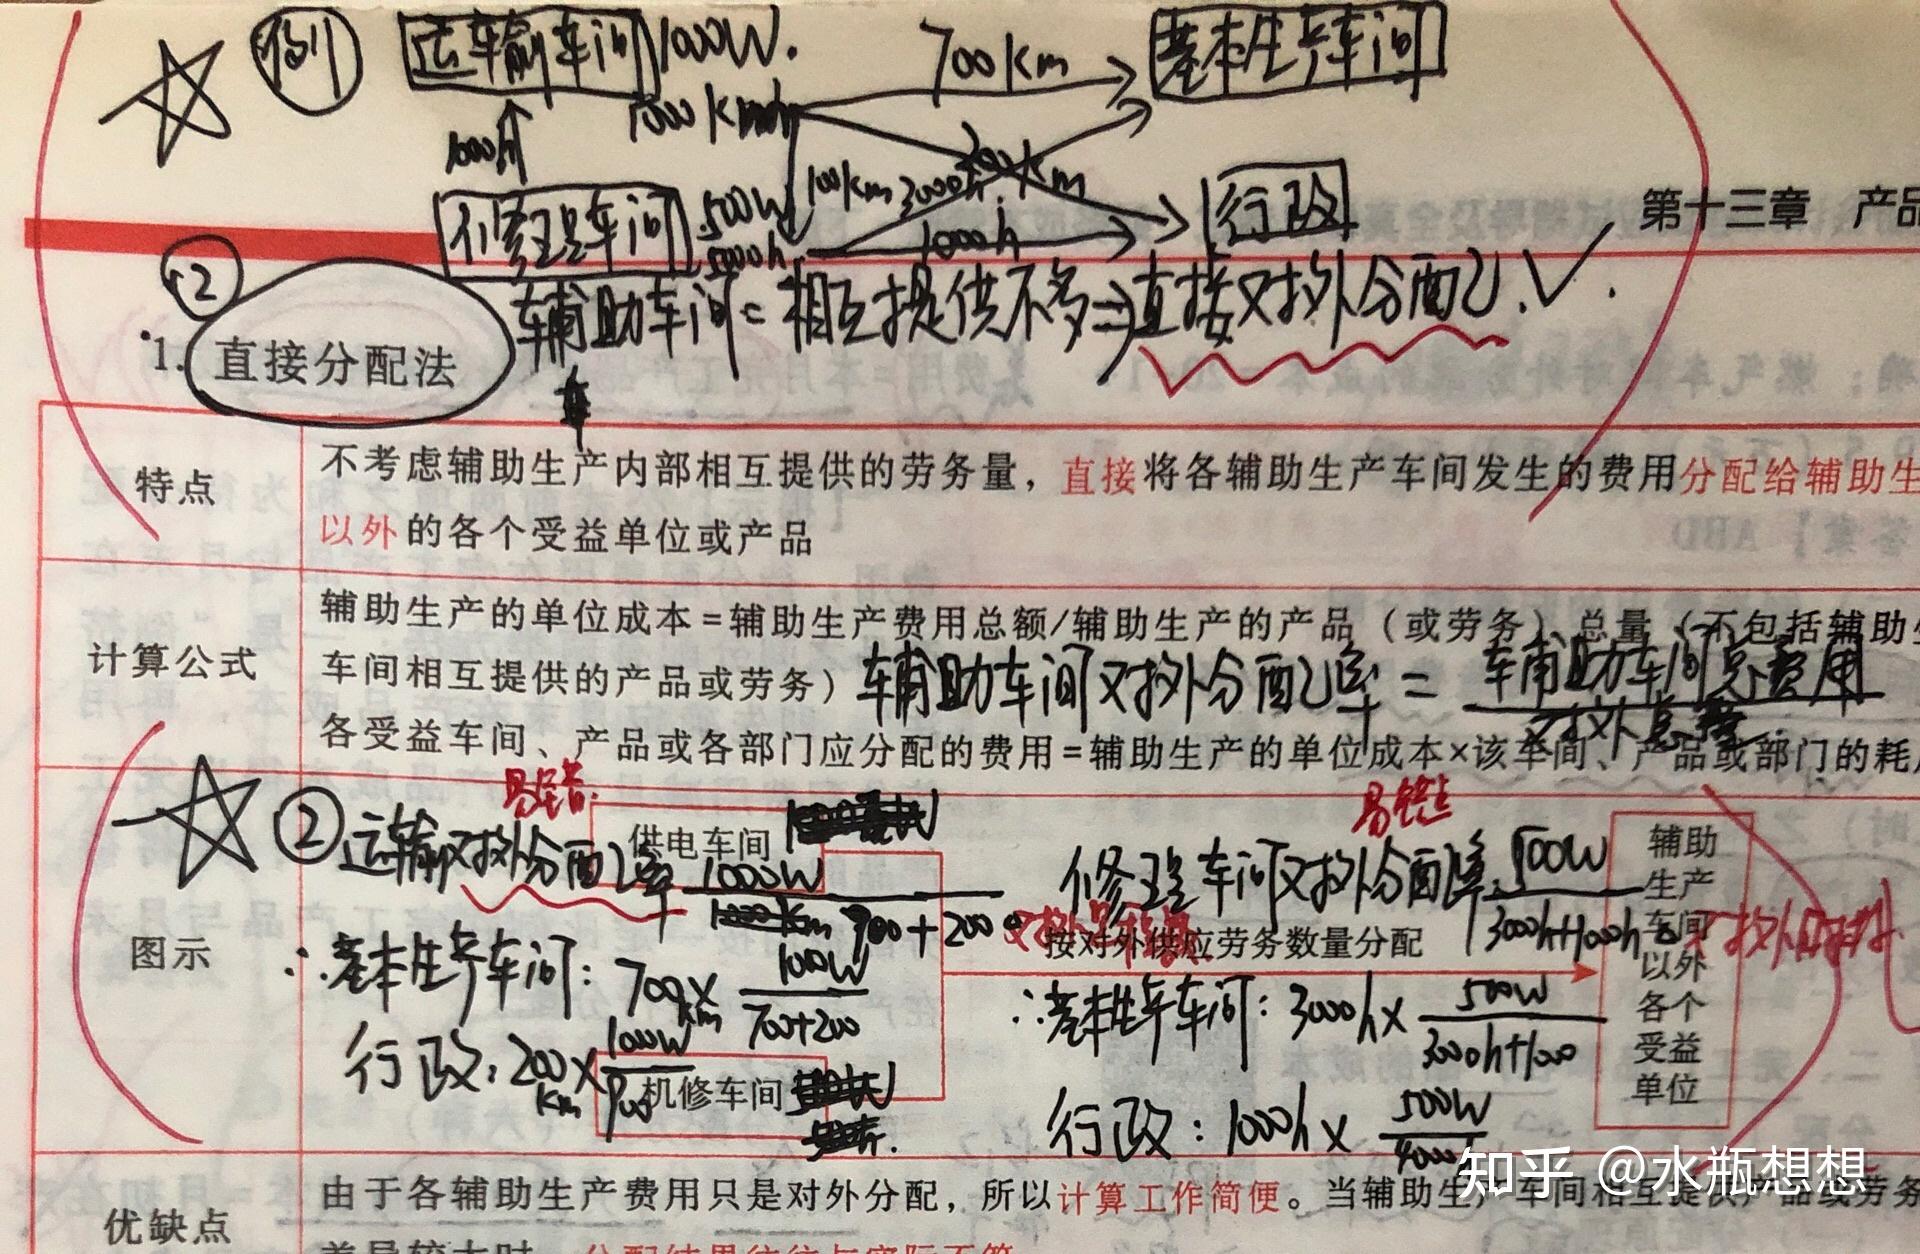 例 运输车间 1000W. 700km 基本生产车间
1000km
1000h
100km 3000h 200km
修理车间 500W 5000h 1000h 行政
第十三章 产品
② 辅助车间=相互提供不多⇒直接对外分配.✓.
1. 直接分配法
特点
不考虑辅助生产内部相互提供的劳务量，直接将各辅助生产车间发生的费用分配给辅助生
以外的各个受益单位或产品
计算公式
辅助生产的单位成本=辅助生产费用总额/辅助生产的产品（或劳务）总量（不包括辅助生
车间相互提供的产品或劳务）辅助车间对外分配率=辅助车间总费用
对外总量
各受益车间、产品或各部门应分配的费用=辅助生产的单位成本×该车间、产品或部门的耗用
图示
易错点 易错点
② 运输对外分配率 1000W
700+200
供电车间
修理车间对外分配率 500W
3000h+1000h
按对外供应劳务数量分配
∴基本生产车间: 700km× 1000W
700+200
行政: 200km× 1000W
900
机修车间
∴基本生产车间: 3000h× 500W
3000h+1000
行政: 1000h× 500W
4000h
辅助
生产
车间
以外
各个
受益
单位
优缺点
由于各辅助生产费用只是对外分配，所以计算工作简便。当辅助生产车间相互提供产品或劳务
差异较大时，分配结果往往与实际不符
知乎 @水瓶想想